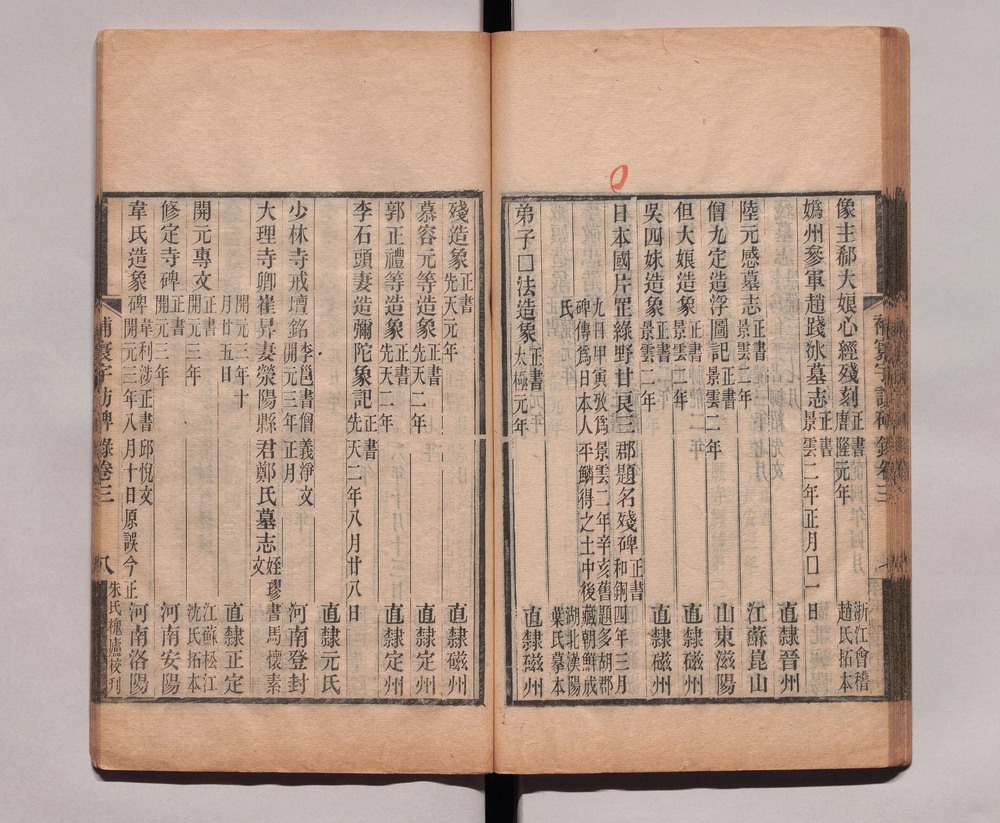 像主郗大娘心經殘刻 正書 唐隆元年 浙江會稽趙氏拓本
嬀州參軍趙踐冰墓志 正書 景雲二年正月囗一日
陸元感墓志 正書 景雲二年 直隸晉州
江蘇崑山
僧九定造浮圖記 正書 景雲二年 山東滋陽
但大娘造象 正書 景雲二年 直隸磁州
吳四妹造象 正書 景雲二年 直隸磁州
日本國片罡綠野甘良三郡題名殘碑 正書 和銅四年三月
九日甲寅攷爲景雲二年辛亥舊題多胡郡
碑傳爲日本人平鱗得之土中後藏朝鮮成
氏 湖北漢陽葉氏摹本
弟子囗法造象 正書 太極元年 直隸磁州
殘造象 正書 先天元年 直隸磁州
慕容元等造象 正書 先天二年 直隸定州
郭正禮等造象 正書 先天二年 直隸定州
李石頭妻造彌陀象記 正書 先天二年八月廿八日
直隸元氏
少林寺戒壇銘 李邕書僧義淨文 開元三年正月 河南登封
大理寺卿崔昇妻滎陽縣君鄭氏墓志 姪璆書馬懷素文
開元三年十月廿五日 直隸正定
開元專文 正書 開元三年 江蘇松江沈氏拓本
修定寺碑 正書 開元三年 河南安陽
韋氏造象碑 韋利涉正書邱悅文 開元三年八月十日原誤今正 河南洛陽
補寰宇訪碑錄卷三
八
朱氏槐廬校刊